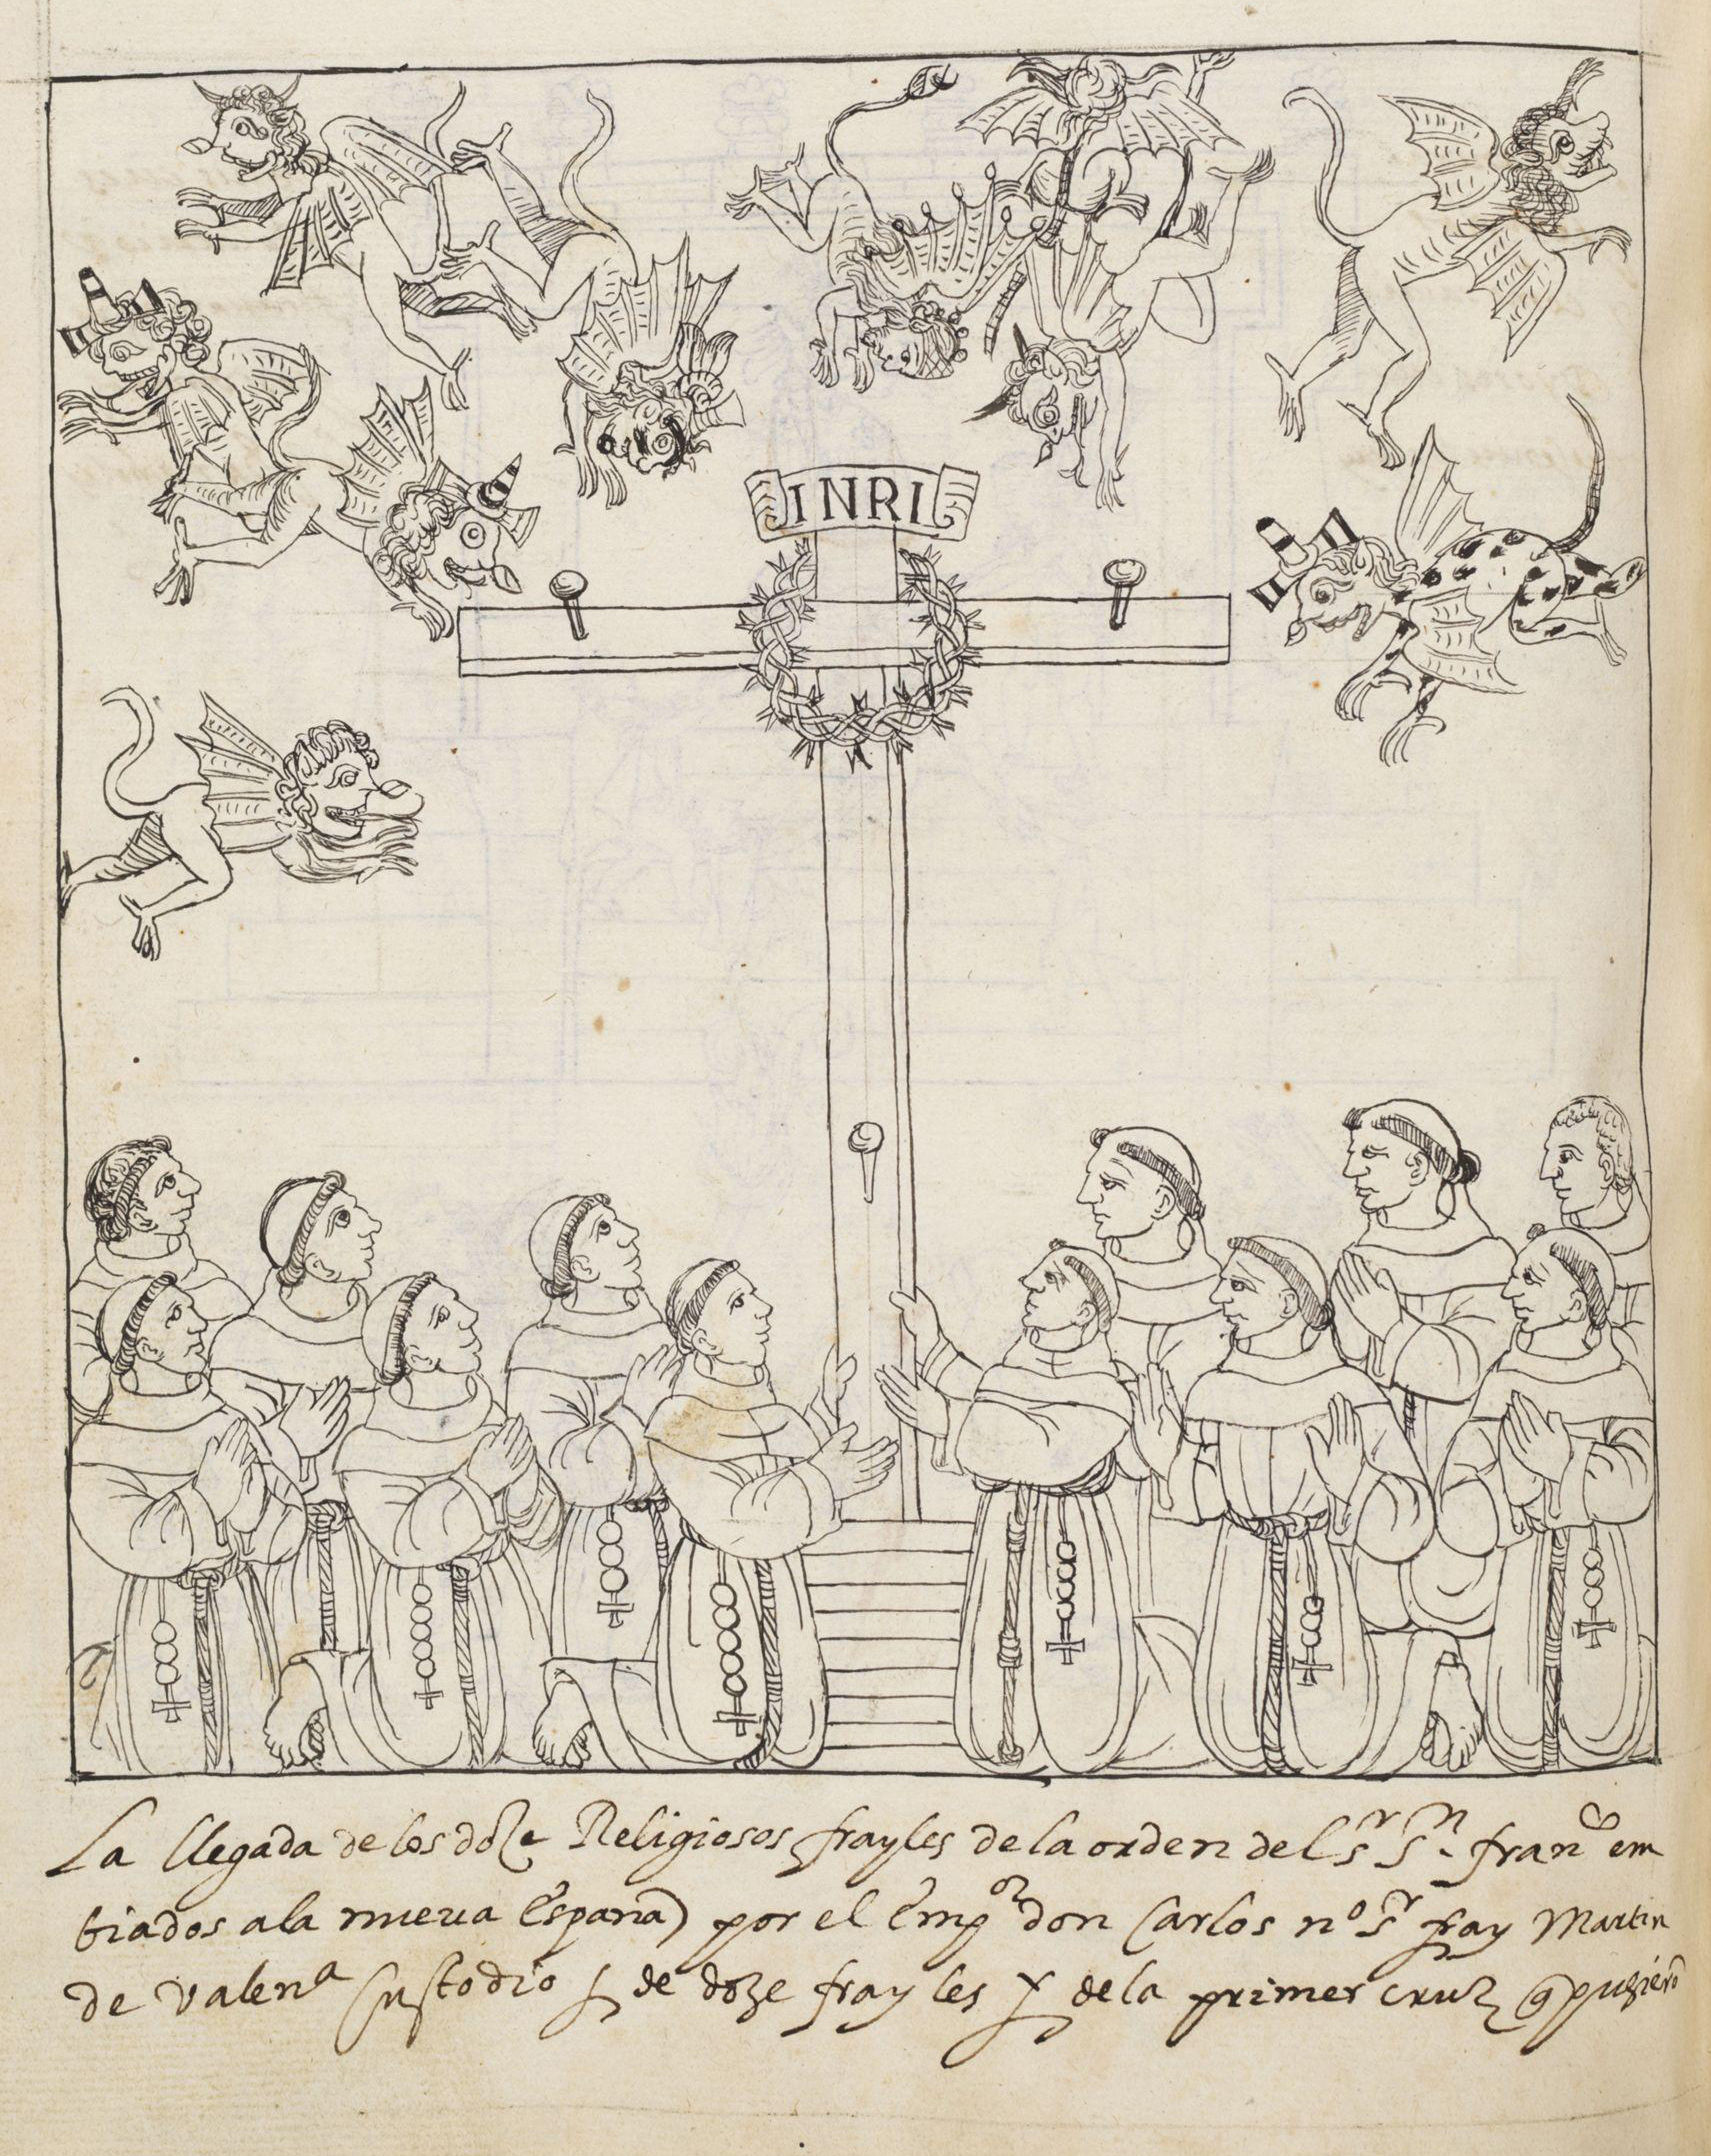 INRI
La llegada de los doze Religiosos frayles de la orden del Sr Sn. franco em
biados a la nueua España por el Empor don Carlos no Sr fray Martin
de Valena Custodio de doze frayles y de la primer cruz q pusierõ